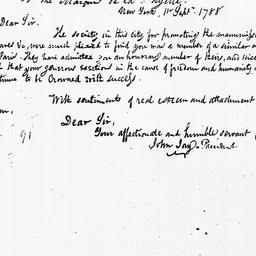 New York, 1st Septr. 1788
Dear Sir,
The society in this city for promoting the manumission
were much pleased to find you was a member of a similar
Paris. They have admitted you an honorary member of theirs, and
that your generous exertions in the cause of freedom and humanity
to be Crowned with success.
With sentiments of real esteem and attachment
Dear Sir,
91 Your affectionate and humble servant
John Jay - President